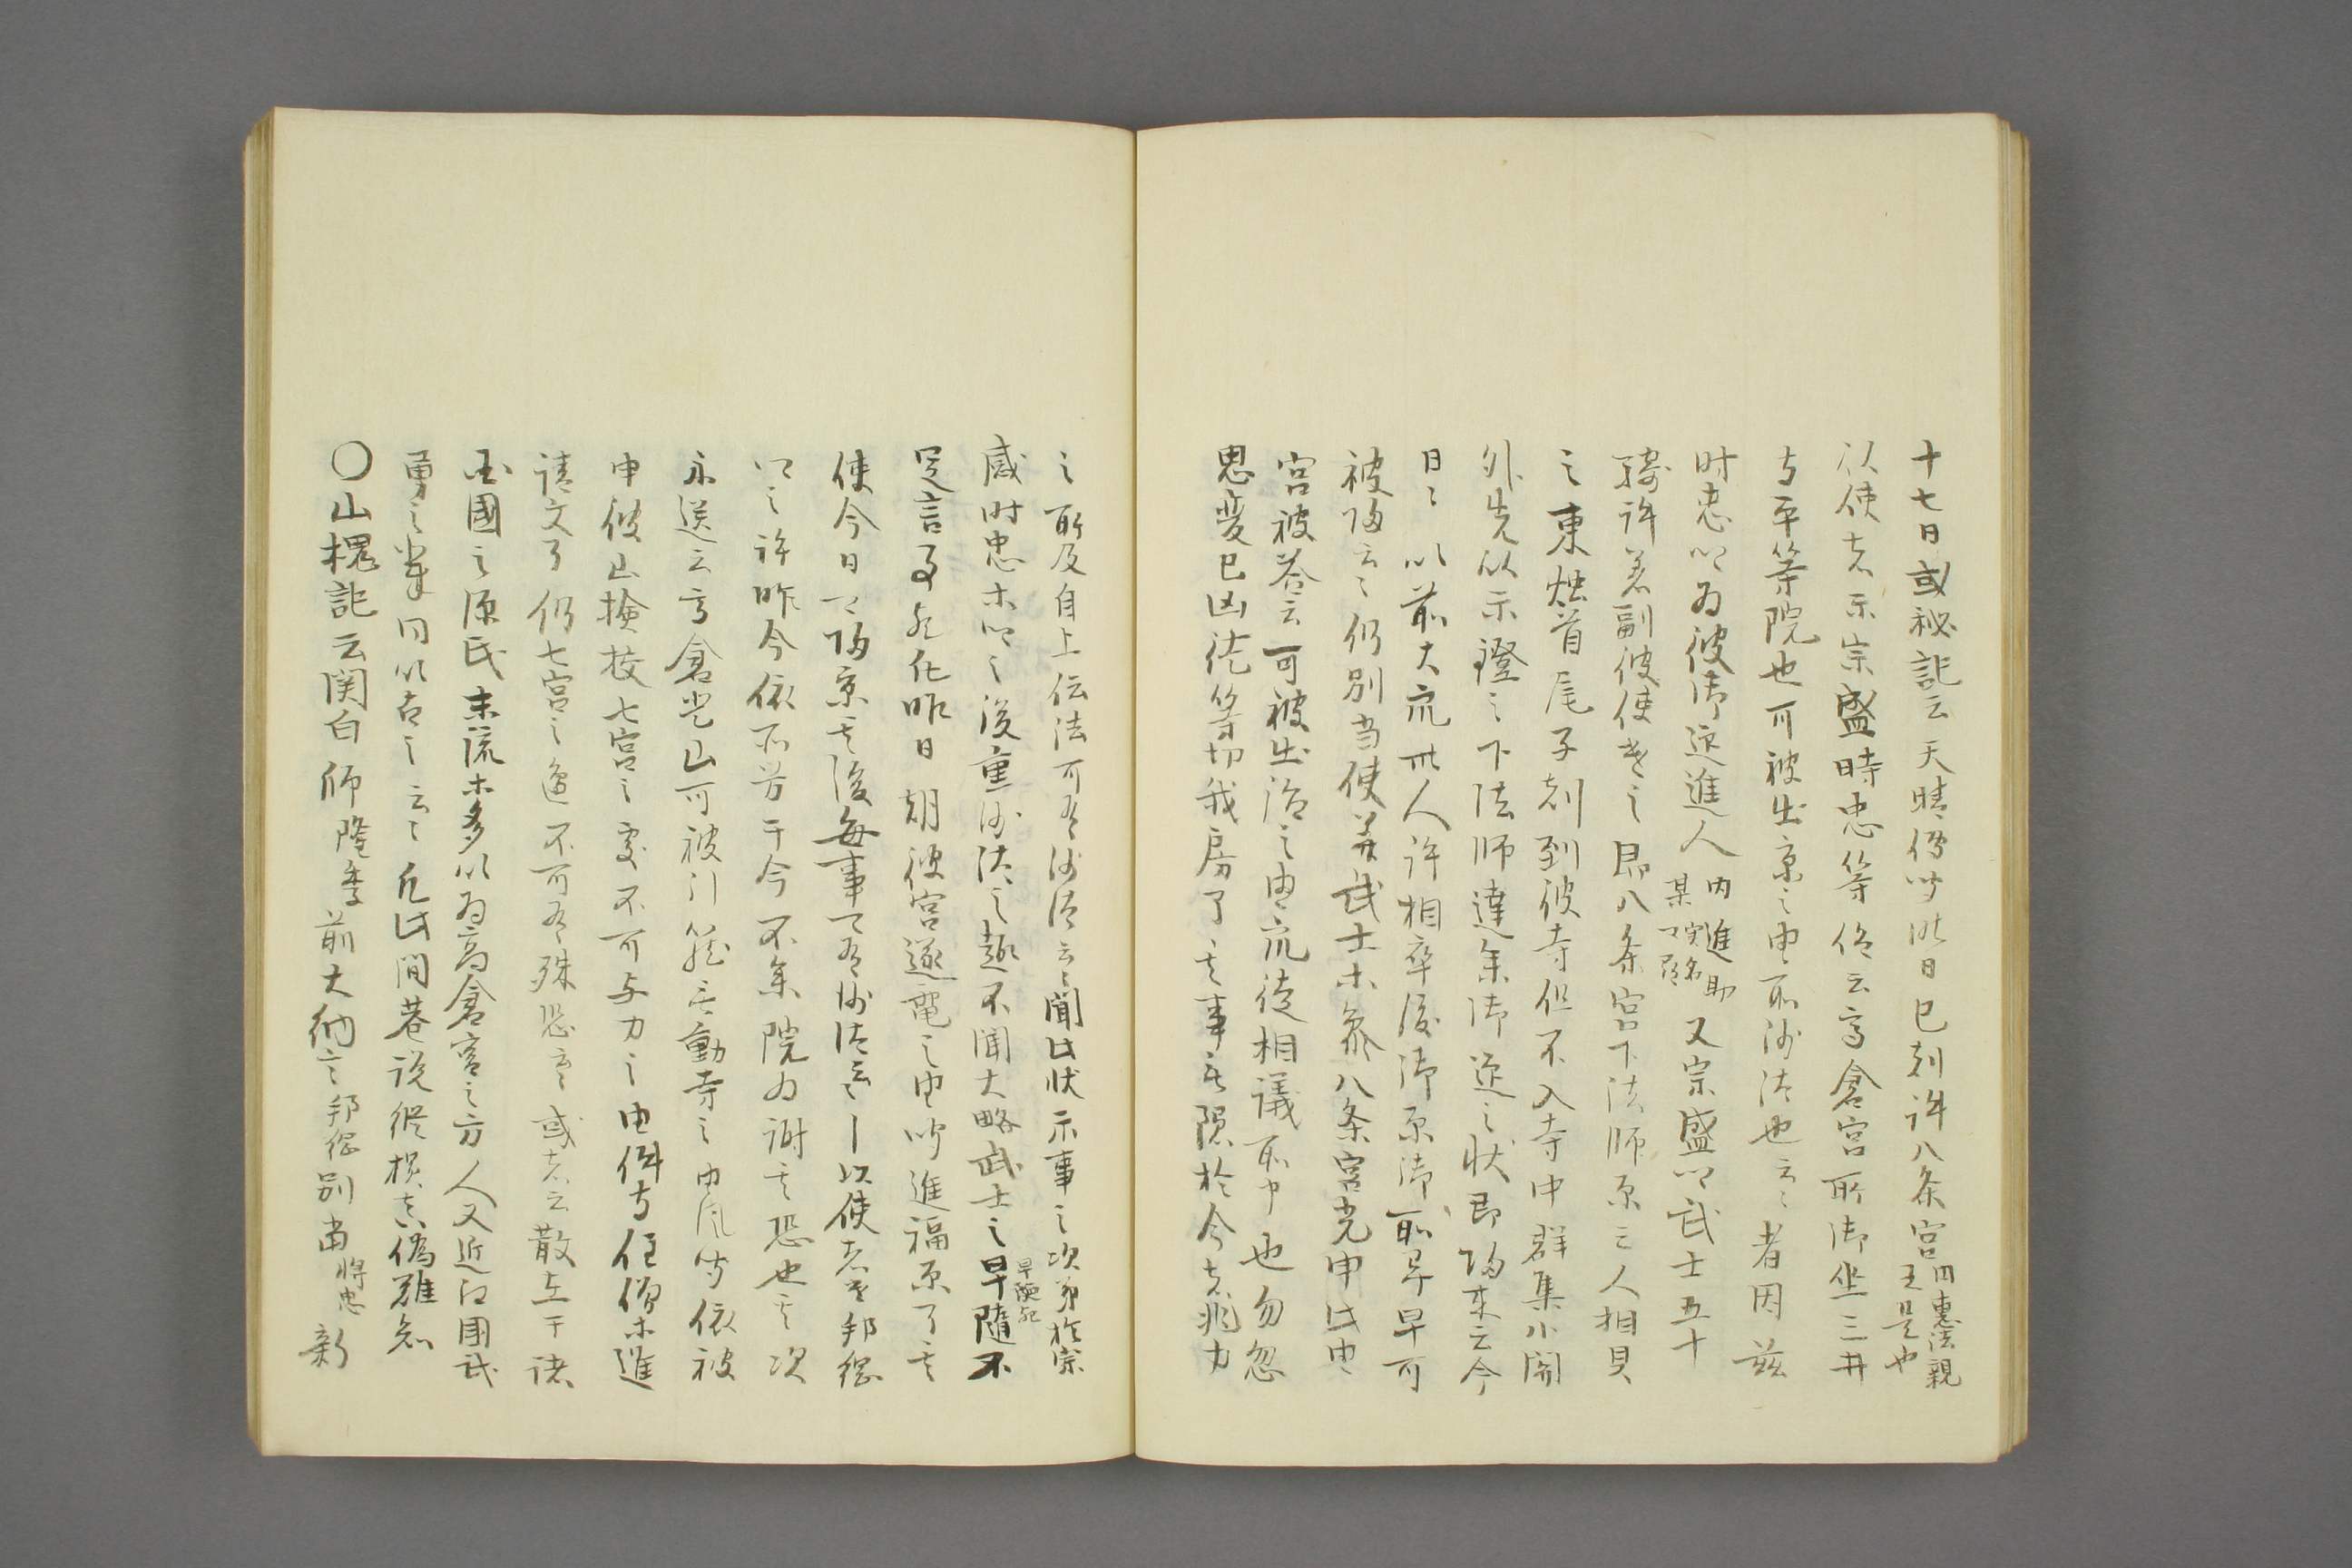 十七日或秘記云天晴伝聞昨日巳刻許八条宮円恵法親王是也
以使者示宗盛時忠等仰云高倉宮所御坐三井
寺平等院也可被出京之由所沙汰也云々者因茲
時忠卿為彼御迎進人内進助某実名可尋又宗盛卿武士五十
騎許差副彼使遣之即八条宮下法師原三人相具
之東燭首尾子刻到彼寺但不入寺中群集小関
外先以示證之下法師達参御迎之状即帰来云今
日々以前大衆卅人許相率渡御京御所早早可
被帰云々仍別当使并武士等参八条宮先申此由
宮被答云可被出給之由衆徒相議所申也勿忽
思変已凶徒等切我房了其事無隠於今者非力
之所及自上伝法可有沙汰云々聞此状示事之次第於宗
盛時忠等卿之後重沙汰之趣不聞大略武士之早随不
早速歟
定言又或化昨日朝彼宮逐電之由以進福原了其
使今日可帰京其後毎事可有沙汰云々以使者遣邦綱
卿之許昨今依不労于今不参院為謝其恐也其次
示送云高倉宮山可被引籠無動寺之由風聞依被
申彼山検校七宮之処不可与力之由件寺住僧等進
請文了仍七宮之辺不可有殊恐云々或者云散在于諸
国之源氏末流等多以為高倉宮之方人又近江国武
勇之輩同以与之云々凡此間巷説縦横真偽難知
〇山槐記云関白師隆季前大納言邦綱別当時忠新